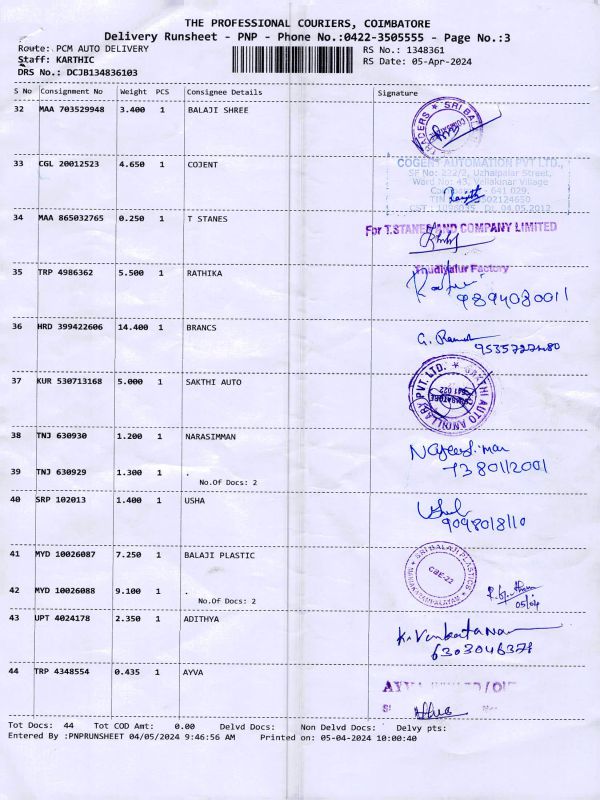 THE PROFESSIONAL COURIERS, COIMBATORE
Delivery Runsheet - PNP - Phone No.:0422-3505555 - Page No.:3
Route: PCM AUTO DELIVERY RS No.: 1348361
Staff: KARTHIC RS Date: 05-Apr-2024
DRS No.: DCJB134836103
S No Consignment No Weight PCS Consignee Details Signature
32 MAA 703529948 3.400 1 BALAJI SHREE
SRI BAL TRADERS
33 CGL 20012523 4.650 1 COJENT
COGENT AUTOMATION PVT LTD.,
SF No: 222/2, Uzhalpalar Street,
Ward No: 43, Vellakinar Village
641 029.
TIN 502124650
04.05.2012
34 MAA 865032765 0.250 1 T STANES
For T.STANES AND COMPANY LIMITED
Thudiyalur Factory
35 TRP 4986362 5.500 1 RATHIKA
9894080011
36 HRD 399422606 14.400 1 BRANCS
37 KUR 530713168 5.000 1 SAKTHI AUTO
SAKTHI AUTO ANCILLARY PVT. LTD.
COIMBATORE
641 022
38 TNJ 630930 1.200 1 NARASIMMAN
39 TNJ 630929 1.300 1 .
No.Of Docs: 2
40 SRP 102013 1.400 1 USHA
Usha
9098018110
41 MYD 10026087 7.250 1 BALAJI PLASTIC
SRI BALAJI PLASTICS
CBE-22
42 MYD 10026088 9.100 1 .
No.Of Docs: 2
05/04
43 UPT 4024178 2.350 1 ADITHYA
K. Venkatara
44 TRP 4348554 0.435 1 AYVA
AYVA
Tot Docs: 44 Tot COD Amt: 0.00 Delvd Docs: Non Delvd Docs: Delvy pts:
Entered By :PNPRUNSHEET 04/05/2024 9:46:56 AM Printed on: 05-04-2024 10:00:40